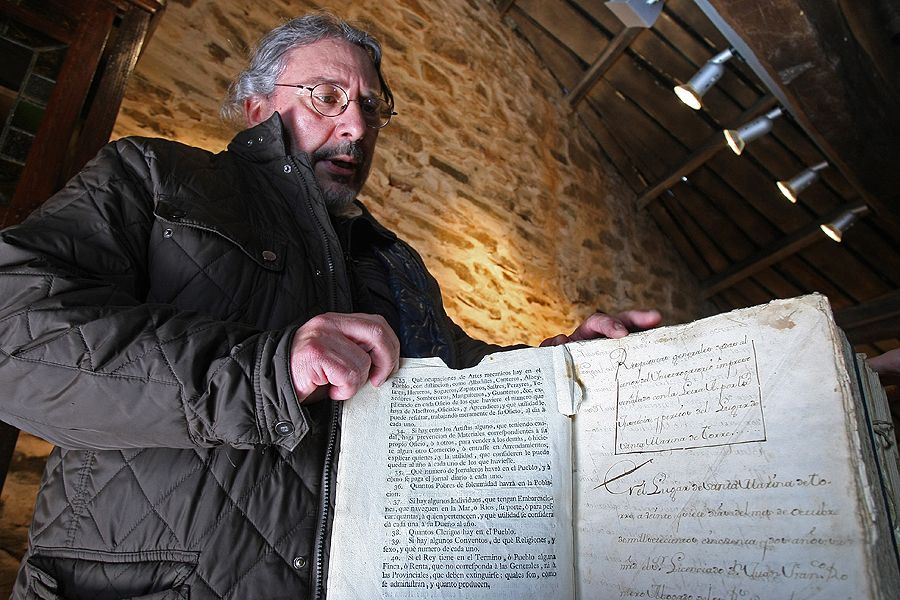 33. Què ocupaciones de Artes mecanicos hay en el
Pueblo, con distincion, como Albañiles, Canteros, Albey-
tares, Herreros, Zapateros, Sastres, Perayres, Te-
xedores, Sombrereros, Manguiteros, y Guanteros, &c. ex-
plicando en cada Oficio de los que huviere el numero que
haya de Maestros, Oficiales, y Aprendices; y què utilidad le
puede resultar, trabajando meramente de su Oficio, al dia à
cada uno.
34. Si hay entre los Artistas alguno, que teniendo cau-
dal, haga prevencion de Materiales correspondientes à su
propio Oficio, ò à otros, para vender à los demàs, ò hicie-
re algun otro Comercio, ò entrasse en Arrendamientos,
explicar quienes; y la utilidad, que consideren le puede
quedar al año à cada uno de los que huviesse.
35. Què numero de Jornaleros havrà en el Pueblo, y à
cómo se paga el jornal diario à cada uno.
36. Quantos Pobres de solemnidad havrà en la Pobla-
cion.
37. Si hay algunos Individuos, que tengan Embarcacio-
nes, que naveguen en la Mar, ò Rios, su porte, ò para pes-
car: quantas, à quien pertenecen, y què utilidad se considera
dà cada una à su Dueño al año.
38. Quantos Clerigos hay en el Pueblo.
39. Si hay algunos Conventos, de què Religiones, y
sexo, y què numero de cada uno.
40. Si el Rey tiene en el Termino, ò Pueblo alguna
Finca, ò Renta, que no corresponda à las Generales, ni à
las Provinciales, que deben extinguirse; quales son, como
se administran, y quanto producen.
Respuestas generales dadas al
Interrogatorio impreso
con la Letra
del Lugar de
Santa Marina de Torre
En el Lugar de Santa Marina de To-
rre a del mes de octubre
de mill setecientos cinquenta y
Licenciado Dn Juan Fran.co